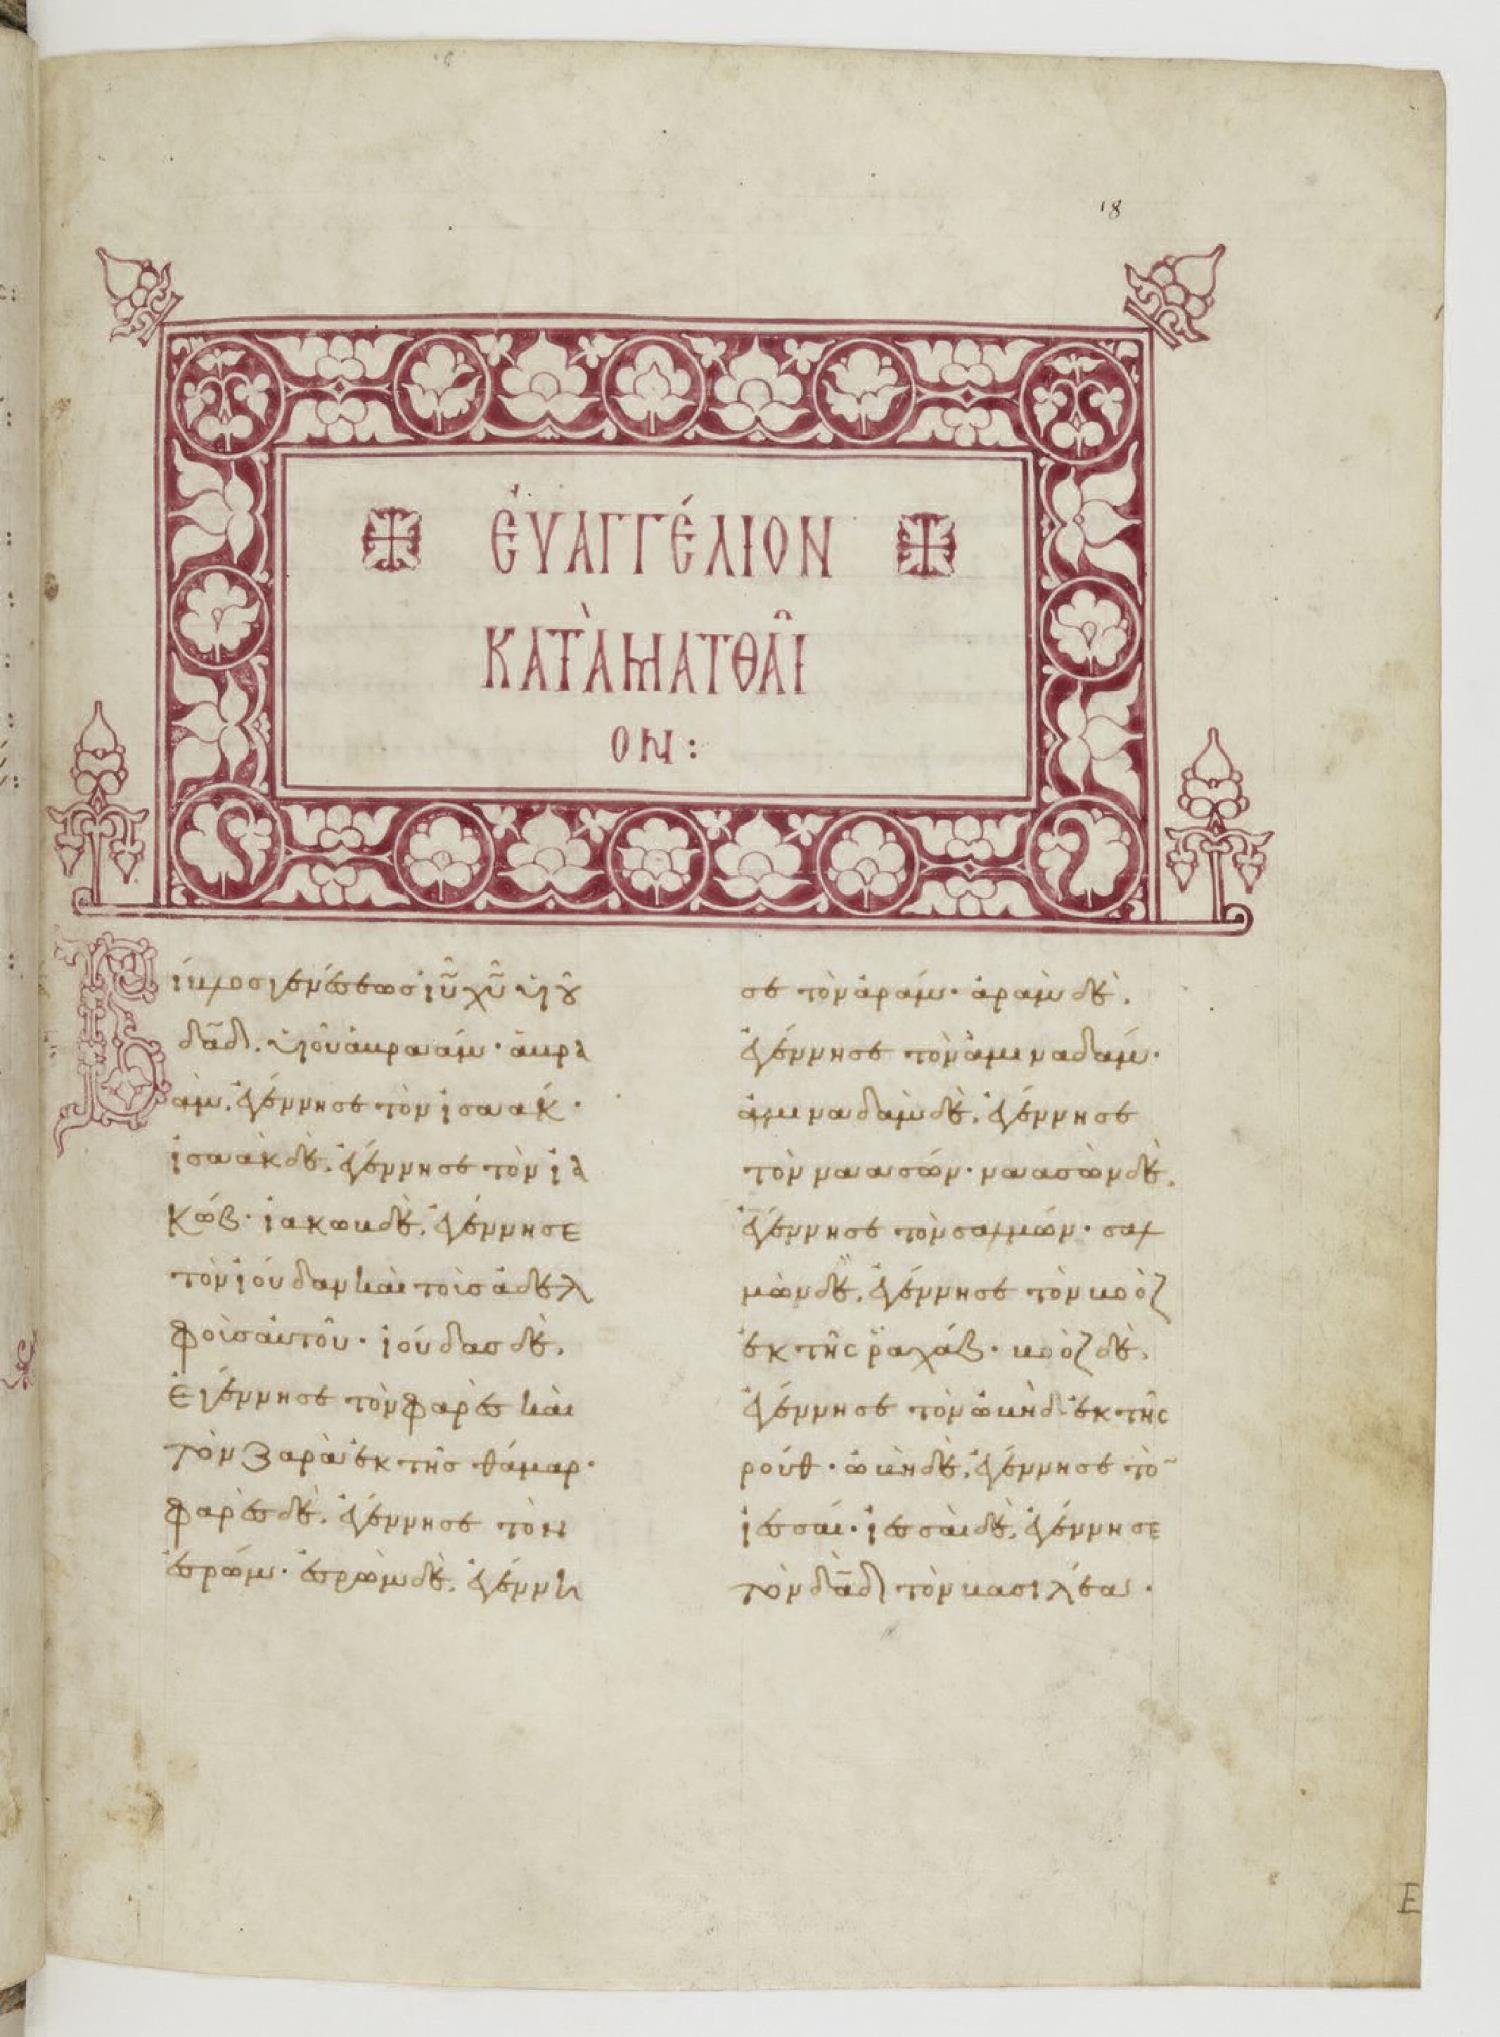 18
ἐυαγγέλιον
κατὰ ματθαῖ
ον:
Βίβλος γενέσεως ἰῦ χῦ ὑιοῦ
δαδ. ὑιοῦ ἀβραάμ· ἀβρα
ὰμ. ἐγέννησε τὸν ἰσαάκ·
ἰσαὰκ δὲ. ἐγέννησε τὸν ἰα
κώβ· ἰακὼβ δὲ. ἐγέννησε
τὸν ἰούδαν καὶ τοὺσ ἀδελ
φοὺσ ἀυτοῦ· ἰούδασ δὲ.
ἐγέννησε τὸν φαρὲσ καὶ
τὸν ζαρὰ ἐκ τῆσ θάμαρ·
φαρὲσ δὲ. ἐγέννησε τὸν
ἐσρώμ· ἐσρὼμ δὲ. ἐγέννη
σε τὸν ἀράμ· ἀρὰμ δὲ.
ἐγέννησε τὸν ἀμιναδάμ·
ἀμιναδὰμ δὲ. ἐγέννησε
τὸν ναασών· ναασὼν δὲ.
ἐγέννησε τὸν σαλμών· σαλ
μὼν δὲ. ἐγέννησε τὸν βοὸζ
ἐκ τῆς ῥαχάβ· βοὸζ δὲ.
ἐγέννησε τὸν ὠβὴδ ἐκ τῆς
ρούθ· ὠβὴδ δὲ. ἐγέννησε τὸ̄
ἰεσσαί· ἰεσσαὶ δὲ. ἐγέννησε
τὸν δαδ τὸν βασιλέα·
E